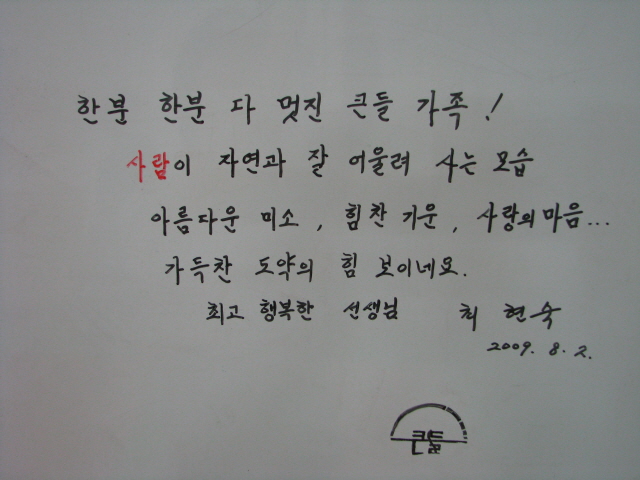 한분 한분 다 멋진 큰들 가족!
사람이 자연과 잘 어울려 사는 모습
아름다운 미소, 힘찬 기운, 사랑의 마음...
가득찬 도약의 힘 보이네요.
최고 행복한 선생님 최현숙
2009. 8. 2.
큰들